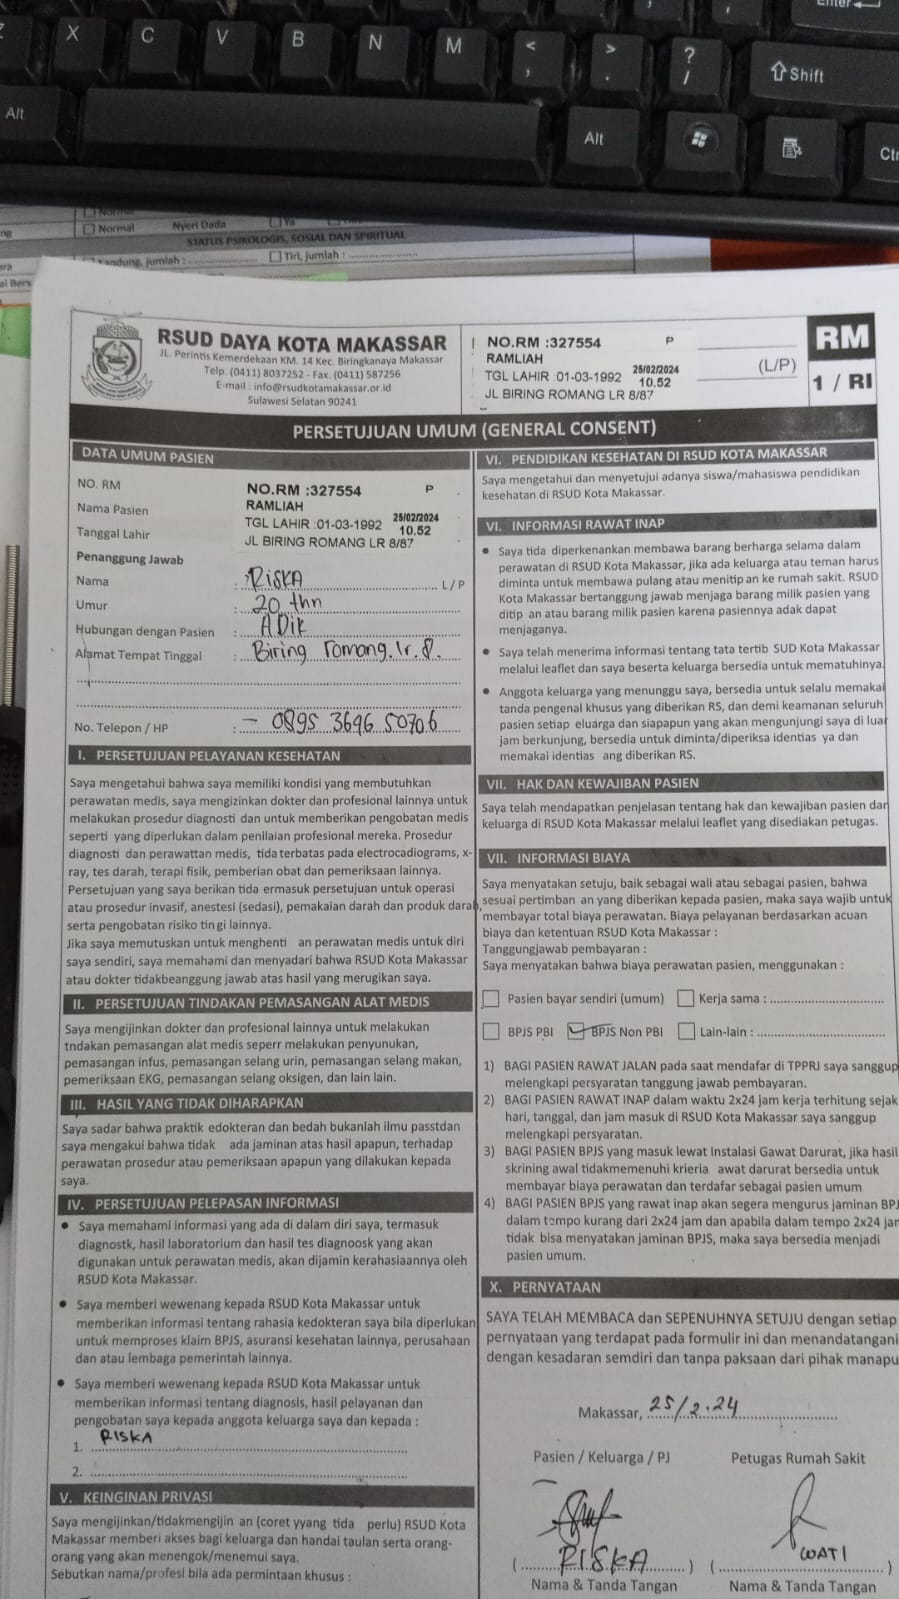 Enter
Z X C V B N M < , > . ? / Shift
Alt Alt Ctr
Normal
Normal Nyeri Dada Ya
STATUS PSIKOLOGIS, SOSIAL DAN SPIRITUAL
Kandung, jumlah : Tiri, jumlah :
RSUD DAYA KOTA MAKASSAR
JL. Perintis Kemerdekaan KM. 14 Kec. Biringkanaya Makassar
Telp. (0411) 8037252 - Fax. (0411) 587256
E-mail : info@rsudkotamakassar.or.id
Sulawesi Selatan 90241
NO.RM :327554 P
RAMLIAH
TGL LAHIR :01-03-1992 25/02/2024
10.52
JL BIRING ROMANG LR 8/87
(L/P)
RM
1 / RI
PERSETUJUAN UMUM (GENERAL CONSENT)
DATA UMUM PASIEN
NO. RM NO.RM :327554 P
Nama Pasien RAMLIAH
Tanggal Lahir TGL LAHIR :01-03-1992 25/02/2024
10.52
JL BIRING ROMANG LR 8/87
Penanggung Jawab
Nama : RISKA L / P
Umur : 20 thn
Hubungan dengan Pasien : ADIK
Alamat Tempat Tinggal : Biring romang. lr. 8.
No. Telepon / HP : - 0895 3696 50706
I. PERSETUJUAN PELAYANAN KESEHATAN
Saya mengetahui bahwa saya memiliki kondisi yang membutuhkan
perawatan medis, saya mengizinkan dokter dan profesional lainnya untuk
melakukan prosedur diagnosti dan untuk memberikan pengobatan medis
seperti yang diperlukan dalam penilaian profesional mereka. Prosedur
diagnosti dan perawattan medis, tida terbatas pada electrocadiograms, x-
ray, tes darah, terapi fisik, pemberian obat dan pemeriksaan lainnya.
Persetujuan yang saya berikan tida ermasuk persetujuan untuk operasi
atau prosedur invasif, anestesi (sedasi), pemakaian darah dan produk darah,
serta pengobatan risiko tin gi lainnya.
Jika saya memutuskan untuk menghenti an perawatan medis untuk diri
saya sendiri, saya memahami dan menyadari bahwa RSUD Kota Makassar
atau dokter tidakbeanggung jawab atas hasil yang merugikan saya.
II. PERSETUJUAN TINDAKAN PEMASANGAN ALAT MEDIS
Saya mengijinkan dokter dan profesional lainnya untuk melakukan
tndakan pemasangan alat medis seperr melakukan penyunukan,
pemasangan infus, pemasangan selang urin, pemasangan selang makan,
pemeriksaan EKG, pemasangan selang oksigen, dan lain lain.
III. HASIL YANG TIDAK DIHARAPKAN
Saya sadar bahwa praktik edokteran dan bedah bukanlah ilmu passtdan
saya mengakui bahwa tidak ada jaminan atas hasil apapun, terhadap
perawatan prosedur atau pemeriksaan apapun yang dilakukan kepada
saya.
IV. PERSETUJUAN PELEPASAN INFORMASI
• Saya memahami informasi yang ada di dalam diri saya, termasuk
diagnostk, hasil laboratorium dan hasil tes diagnoosk yang akan
digunakan untuk perawatan medis, akan dijamin kerahasiaannya oleh
RSUD Kota Makassar.
• Saya memberi wewenang kepada RSUD Kota Makassar untuk
memberikan informasi tentang rahasia kedokteran saya bila diperlukan
untuk memproses klaim BPJS, asuransi kesehatan lainnya, perusahaan
dan atau lembaga pemerintah lainnya.
• Saya memberi wewenang kepada RSUD Kota Makassar untuk
memberikan informasi tentang diagnosis, hasil pelayanan dan
pengobatan saya kepada anggota keluarga saya dan kepada :
1. RISKA
2.
V. KEINGINAN PRIVASI
Saya mengijinkan/tidakmengijin an (coret yyang tida perlu) RSUD Kota
Makassar memberi akses bagi keluarga dan handai taulan serta orang-
orang yang akan menengok/menemui saya.
Sebutkan nama/profesi bila ada permintaan khusus :
VI. PENDIDIKAN KESEHATAN DI RSUD KOTA MAKASSAR
Saya mengetahui dan menyetujui adanya siswa/mahasiswa pendidikan
kesehatan di RSUD Kota Makassar.
VI. INFORMASI RAWAT INAP
• Saya tida diperkenankan membawa barang berharga selama dalam
perawatan di RSUD Kota Makassar, jika ada keluarga atau teman harus
diminta untuk membawa pulang atau menitip an ke rumah sakit. RSUD
Kota Makassar bertanggung jawab menjaga barang milik pasien yang
ditip an atau barang milik pasien karena pasiennya adak dapat
menjaganya.
• Saya telah menerima informasi tentang tata tertib SUD Kota Makassar
melalui leaflet dan saya beserta keluarga bersedia untuk mematuhinya.
• Anggota keluarga yang menunggu saya, bersedia untuk selalu memakai
tanda pengenal khusus yang diberikan RS, dan demi keamanan seluruh
pasien setiap eluarga dan siapapun yang akan mengunjungi saya di luar
jam berkunjung, bersedia untuk diminta/diperiksa identias ya dan
memakai identias ang diberikan RS.
VII. HAK DAN KEWAJIBAN PASIEN
Saya telah mendapatkan penjelasan tentang hak dan kewajiban pasien dan
keluarga di RSUD Kota Makassar melalui leaflet yang disediakan petugas.
VII. INFORMASI BIAYA
Saya menyatakan setuju, baik sebagai wali atau sebagai pasien, bahwa
sesuai pertimban an yang diberikan kepada pasien, maka saya wajib untuk
membayar total biaya perawatan. Biaya pelayanan berdasarkan acuan
biaya dan ketentuan RSUD Kota Makassar :
Tanggungjawab pembayaran :
Saya menyatakan bahwa biaya perawatan pasien, menggunakan :
Pasien bayar sendiri (umum) Kerja sama :
BPJS PBI BPJS Non PBI Lain-lain :
1) BAGI PASIEN RAWAT JALAN pada saat mendafar di TPPRJ saya sanggup
melengkapi persyaratan tanggung jawab pembayaran.
2) BAGI PASIEN RAWAT INAP dalam waktu 2x24 jam kerja terhitung sejak
hari, tanggal, dan jam masuk di RSUD Kota Makassar saya sanggup
melengkapi persyaratan.
3) BAGI PASIEN BPJS yang masuk lewat Instalasi Gawat Darurat, jika hasil
skrining awal tidakmemenuhi krieria awat darurat bersedia untuk
membayar biaya perawatan dan terdafar sebagai pasien umum
4) BAGI PASIEN BPJS yang rawat inap akan segera mengurus jaminan BPJ
dalam tempo kurang dari 2x24 jam dan apabila dalam tempo 2x24 jam
tidak bisa menyatakan jaminan BPJS, maka saya bersedia menjadi
pasien umum.
X. PERNYATAAN
SAYA TELAH MEMBACA dan SEPENUHNYA SETUJU dengan setiap
pernyataan yang terdapat pada formulir ini dan menandatangani
dengan kesadaran semdiri dan tanpa paksaan dari pihak manapu
Makassar, 25/2.24
Pasien / Keluarga / PJ Petugas Rumah Sakit
( RISKA ) ( WATI )
Nama & Tanda Tangan Nama & Tanda Tangan